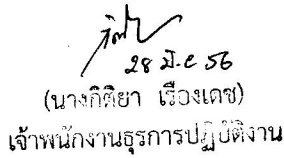 28 มี.ค 56
(นางกิติยา เรืองเดช)
เจ้าพนักงานธุรการปฏิบัติงาน